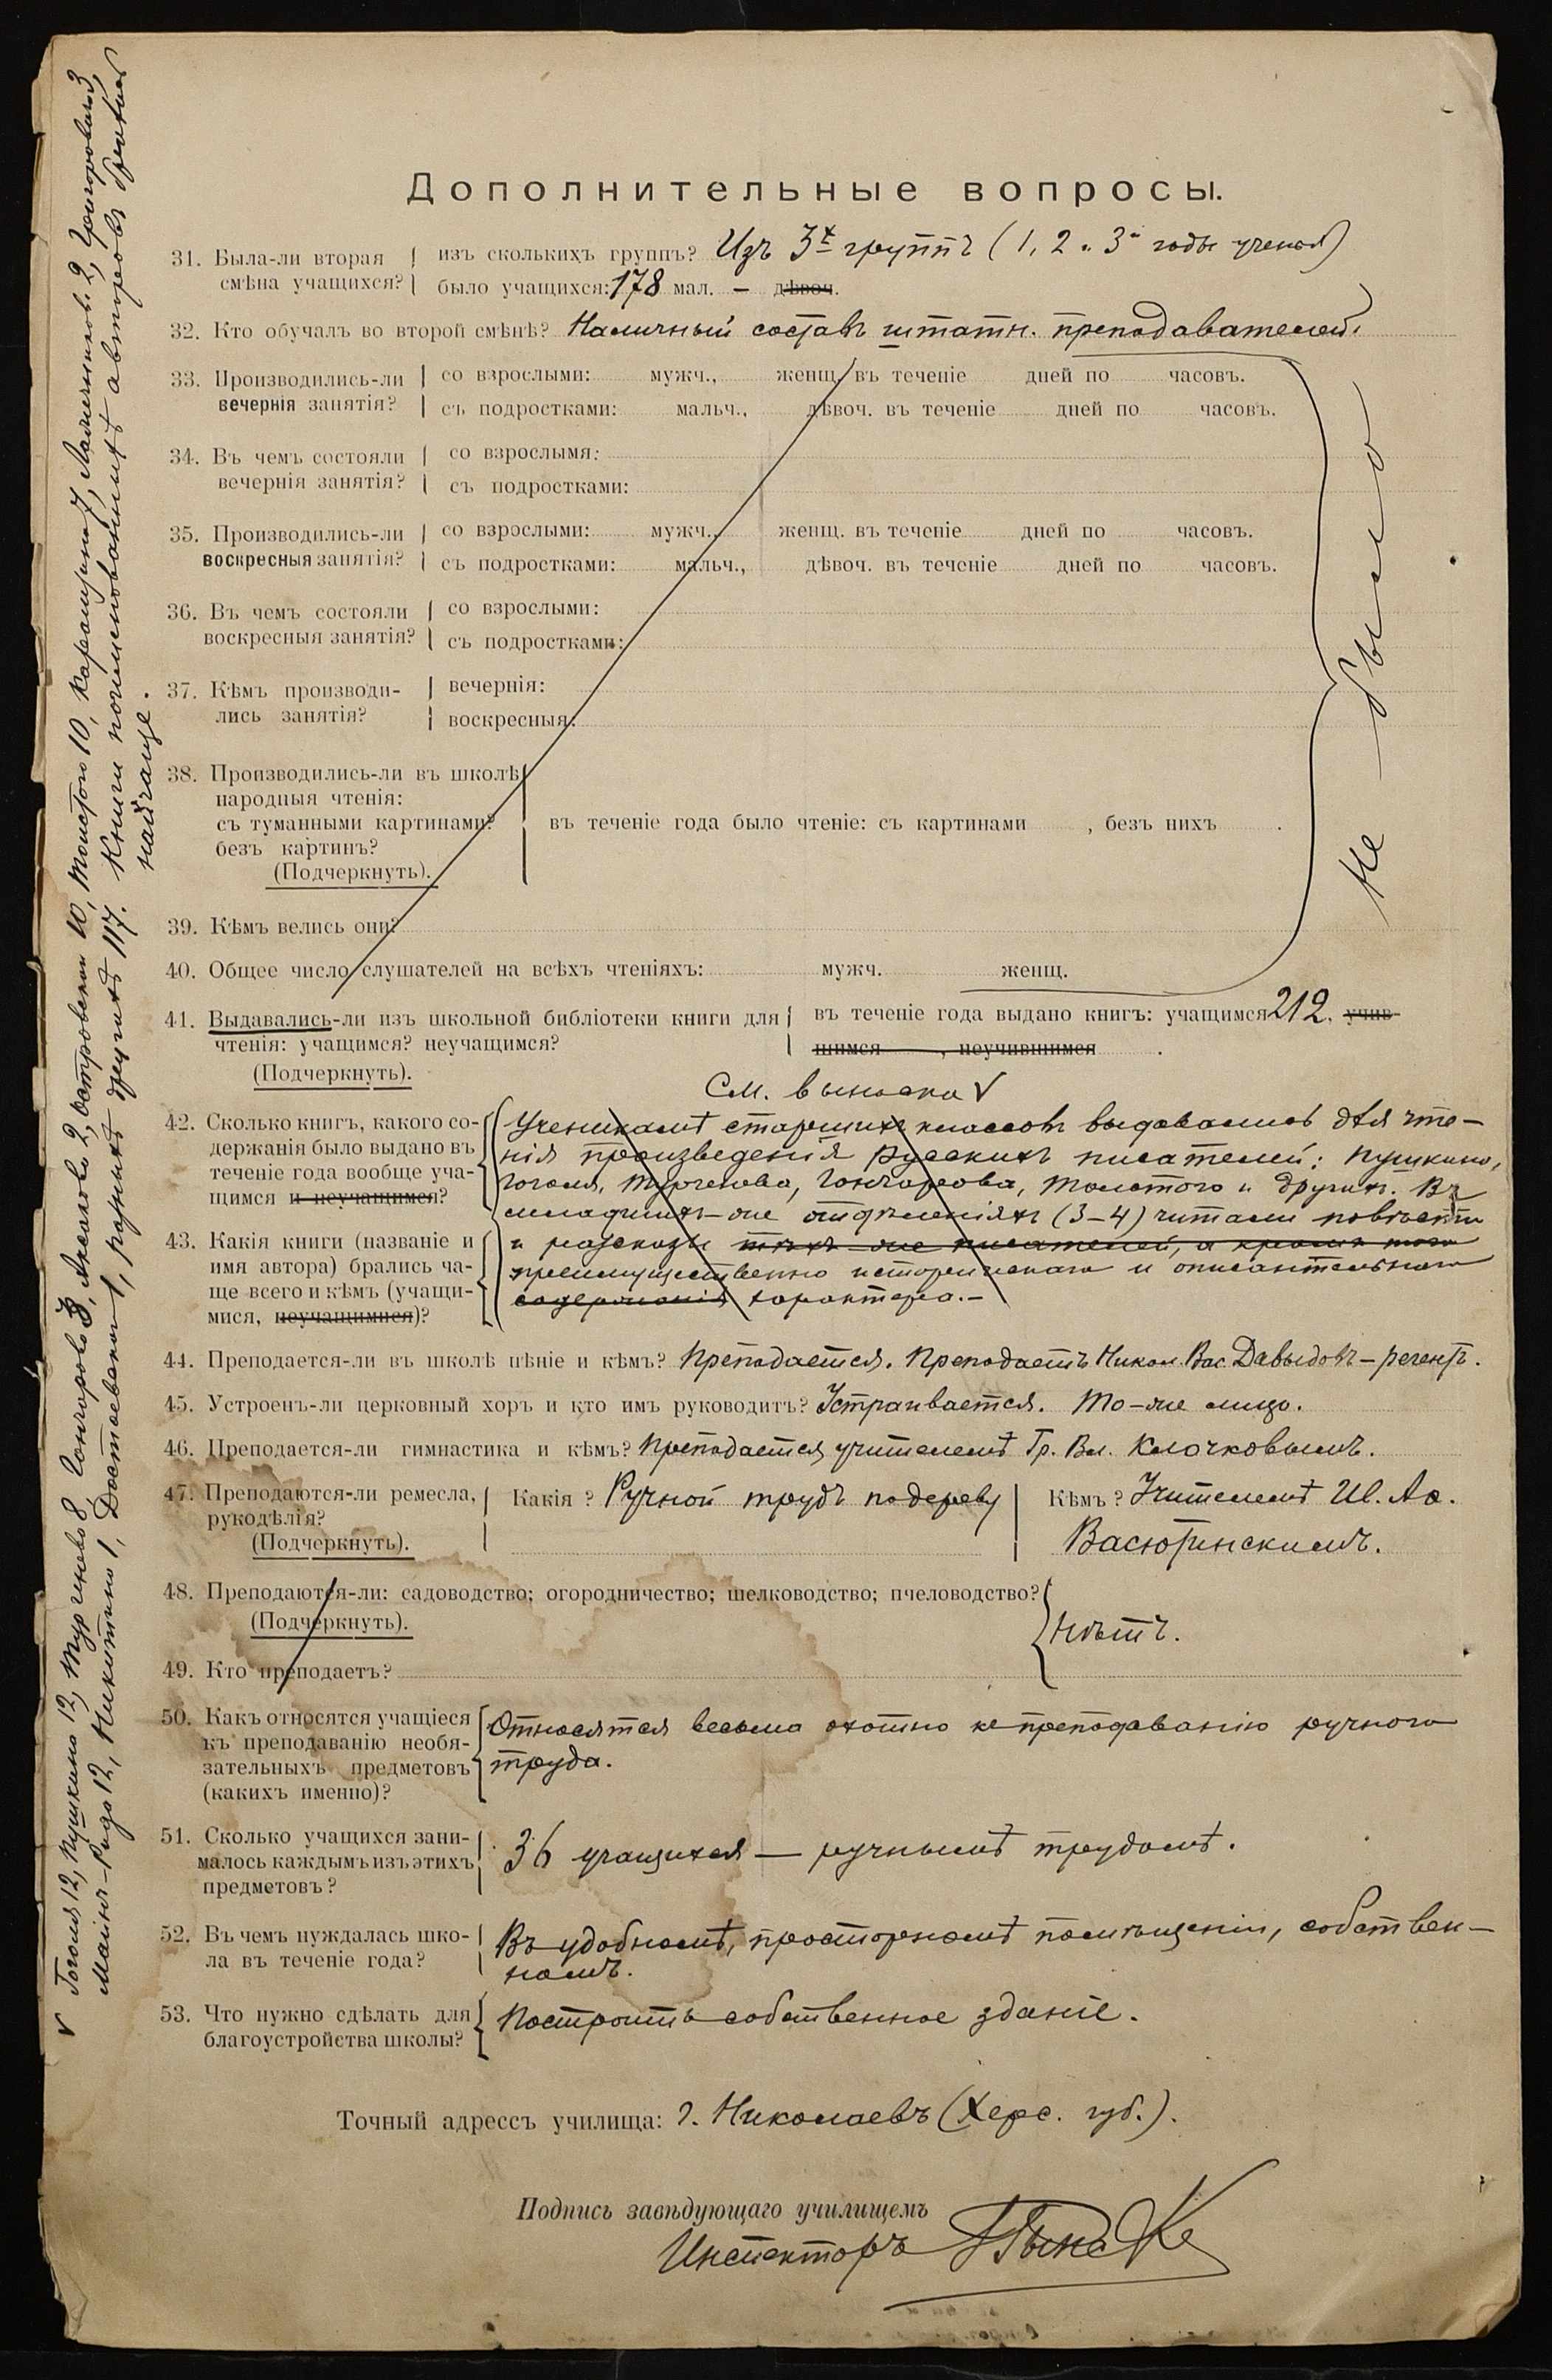 Дополнительные вопросы.
31. Была-ли вторая смѣна учащихся?
изъ сколькихъ группъ? Изъ 3х группъ (1, 2 и 3й годы ученья)
было учащихся: 178 мал. — дѣвоч.
32. Кто обучалъ во второй смѣнѣ? Наличный составъ штатн. преподавателей.
33. Производились-ли вечернія занятія?
со взрослыми: мужч., женщ. въ теченіе дней по часовъ.
съ подростками: мальч., дѣвоч. въ теченіе дней по часовъ.
34. Въ чемъ состояли вечернія занятія?
со взрослымя:
съ подростками:
35. Производились-ли воскресныя занятія?
со взрослыми: мужч., женщ. въ теченіе дней по часовъ.
съ подростками: мальч., дѣвоч. въ теченіе дней по часовъ.
36. Въ чемъ состояли воскресныя занятія?
со взрослыми:
съ подростками:
37. Кѣмъ производи-
лись занятія?
вечернія:
воскресныя:
38. Производились-ли въ школѣ
народныя чтенія:
съ туманными картинами?
безъ картинъ?
(Подчеркнуть).
въ теченіе года было чтеніе: съ картинами , безъ нихъ .
39. Кѣмъ велись они?
40. Общее число слушателей на всѣхъ чтеніяхъ: мужч. женщ.
Не было
41. Выдавались-ли изъ школьной библіотеки книги для
чтенія: учащимся? неучащимся?
(Подчеркнуть).
въ теченіе года выдано книгъ: учащимся 212, учив-
шимся , неучившимся .
См. выноска V
42. Сколько книгъ, какого со-
держанія было выдано въ
теченіе года вообще уча-
щимся и неучащимся?
43. Какія книги (названіе и
имя автора) брались ча-
ще всего и кѣмъ (учащи-
мися, неучащимися)?
Ученикамъ старшихъ классовъ выдавались для чте-
нія произведенія русскихъ писателей: Пушкина,
Гоголя, Тургенева, Гончарова, Толстого и другихъ. Въ
младшихъ-же отдѣленіяхъ (3–4) читали повѣсти
и разсказы тѣхъ-же писателей, а кромѣ того
преимущественно историческаго и описательнаго
содержанія характера.—
44. Преподается-ли въ школѣ пѣніе и кѣмъ? Преподается. Преподаетъ Никол. Вас. Давыдовъ – регентъ.
45. Устроенъ-ли церковный хоръ и кто имъ руководитъ? Устраивается. То-же лицо.
46. Преподается-ли гимнастика и кѣмъ? Преподается учителемъ Гр. Вл. Клочковымъ.
47. Преподаются-ли ремесла,
рукодѣлія?
(Подчеркнуть).
Какія? Ручной трудъ по дереву
Кѣмъ? Учителемъ Ил. Ас.
Васютинскимъ.
48. Преподаются-ли: садоводство; огородничество; шелководство; пчеловодство?
(Подчеркнуть).
Нѣтъ.
49. Кто преподаетъ?
50. Какъ относятся учащіеся
къ преподаванію необя-
зательныхъ предметовъ
(какихъ именно)?
Относятся весьма охотно къ преподаванію ручного
труда.
51. Сколько учащихся зани-
малось каждымъ изъ этихъ
предметовъ?
36 учащихся — ручнымъ трудомъ.
52. Въ чемъ нуждалась шко-
ла въ теченіе года?
Въ удобномъ, просторномъ помѣщеніи, собствен-
номъ.
53. Что нужно сдѣлать для
благоустройства школы?
Построить собственное зданіе.
Точный адрессъ училища: г. Николаевъ (Херс. губ.).
Подпись завѣдующаго училищемъ
Инспекторъ
V Гоголя 12, Пушкина 12, Тургенева 8, Гончарова 3, Аксакова 2, Островскаго 10, Толстого 10, Карамзина 7, Григоровича 3,
Майнъ-Рида 12, Никитина 1, Достоевскаго 1, разныхъ другихъ 117. Книги поименованныхъ авторовъ брались
найчаще.